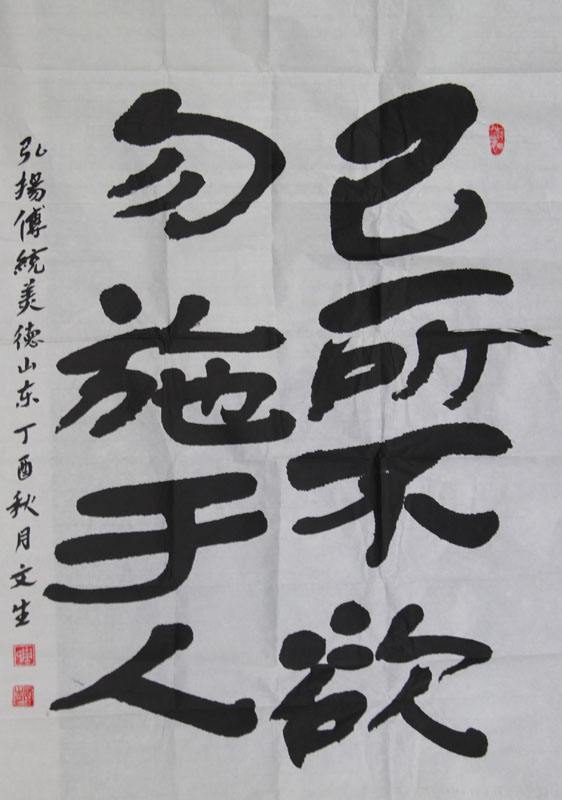 己所不欲
勿施于人
弘揚傳統美德山东丁酉秋月文生